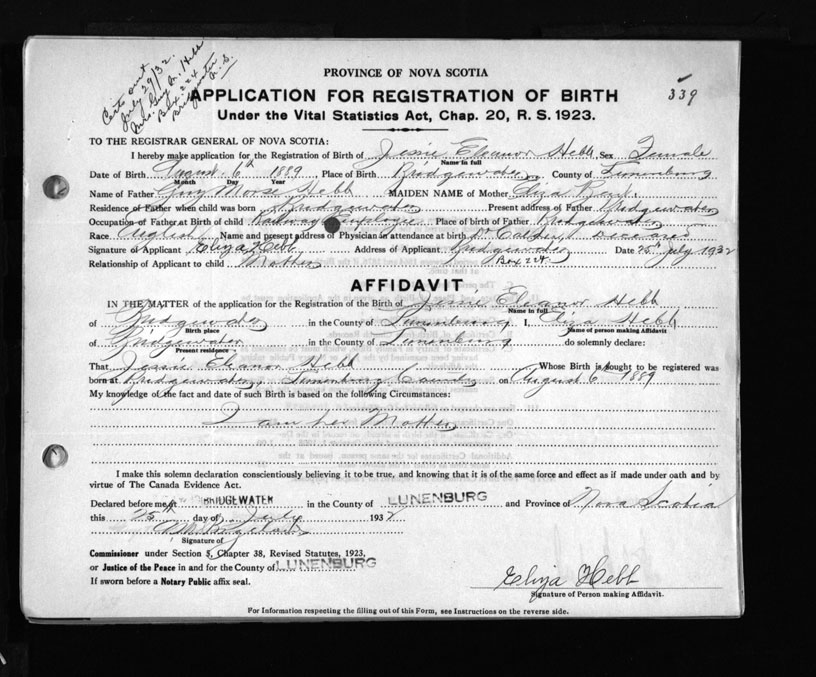 Certs out
July 29/32.
Mrs. Guy M. Hebb
Box 224
Bridgewater
N. S.
339
PROVINCE OF NOVA SCOTIA
APPLICATION FOR REGISTRATION OF BIRTH
Under the Vital Statistics Act, Chap. 20, R. S. 1923.
TO THE REGISTRAR GENERAL OF NOVA SCOTIA:
I hereby make application for the Registration of Birth of Jessie Eleanor Hebb, Sex Female
Name in full
Date of Birth August 6th 1889 Place of Birth Bridgewater County of Lunenburg
Month Day Year
Name of Father Guy Morse Hebb MAIDEN NAME of Mother Eliza
Residence of Father when child was born Bridgewater Present address of Father Bridgewater
Occupation of Father at Birth of child Railway Employee Place of birth of Father Bridgewater
Race English Name and present address of Physician in attendance at birth Dr. deceased
Signature of Applicant Eliza Hebb Address of Applicant Bridgewater Date 25th July 1932
Relationship of Applicant to child Mother Box 224
AFFIDAVIT
IN THE MATTER of the application for the Registration of the Birth of Jessie Eleanor Hebb
Name in full
of Bridgewater in the County of Lunenburg I, Eliza Hebb
Birth place Name of person making Affidavit
of Bridgewater in the County of Lunenburg do solemnly declare:
Present residence
That Jessie Eleanor Hebb Whose Birth is sought to be registered was
born at Bridgewater, Lunenburg County on August 6th 1889
My knowledge of the fact and date of such Birth is based on the following Circumstances:
I am her Mother
I make this solemn declaration conscientiously believing it to be true, and knowing that it is of the same force and effect as if made under oath and by
virtue of The Canada Evidence Act.
Declared before me at BRIDGEWATER in the County of LUNENBURG and Province of Nova Scotia
this 25th day of July 1932
Signature of
Commissioner under Section 5, Chapter 38, Revised Statutes, 1923,
or Justice of the Peace in and for the County of LUNENBURG
If sworn before a Notary Public affix seal.
Eliza Hebb
Signature of Person making Affidavit.
For Information respecting the filling out of this Form, see Instructions on the reverse side.